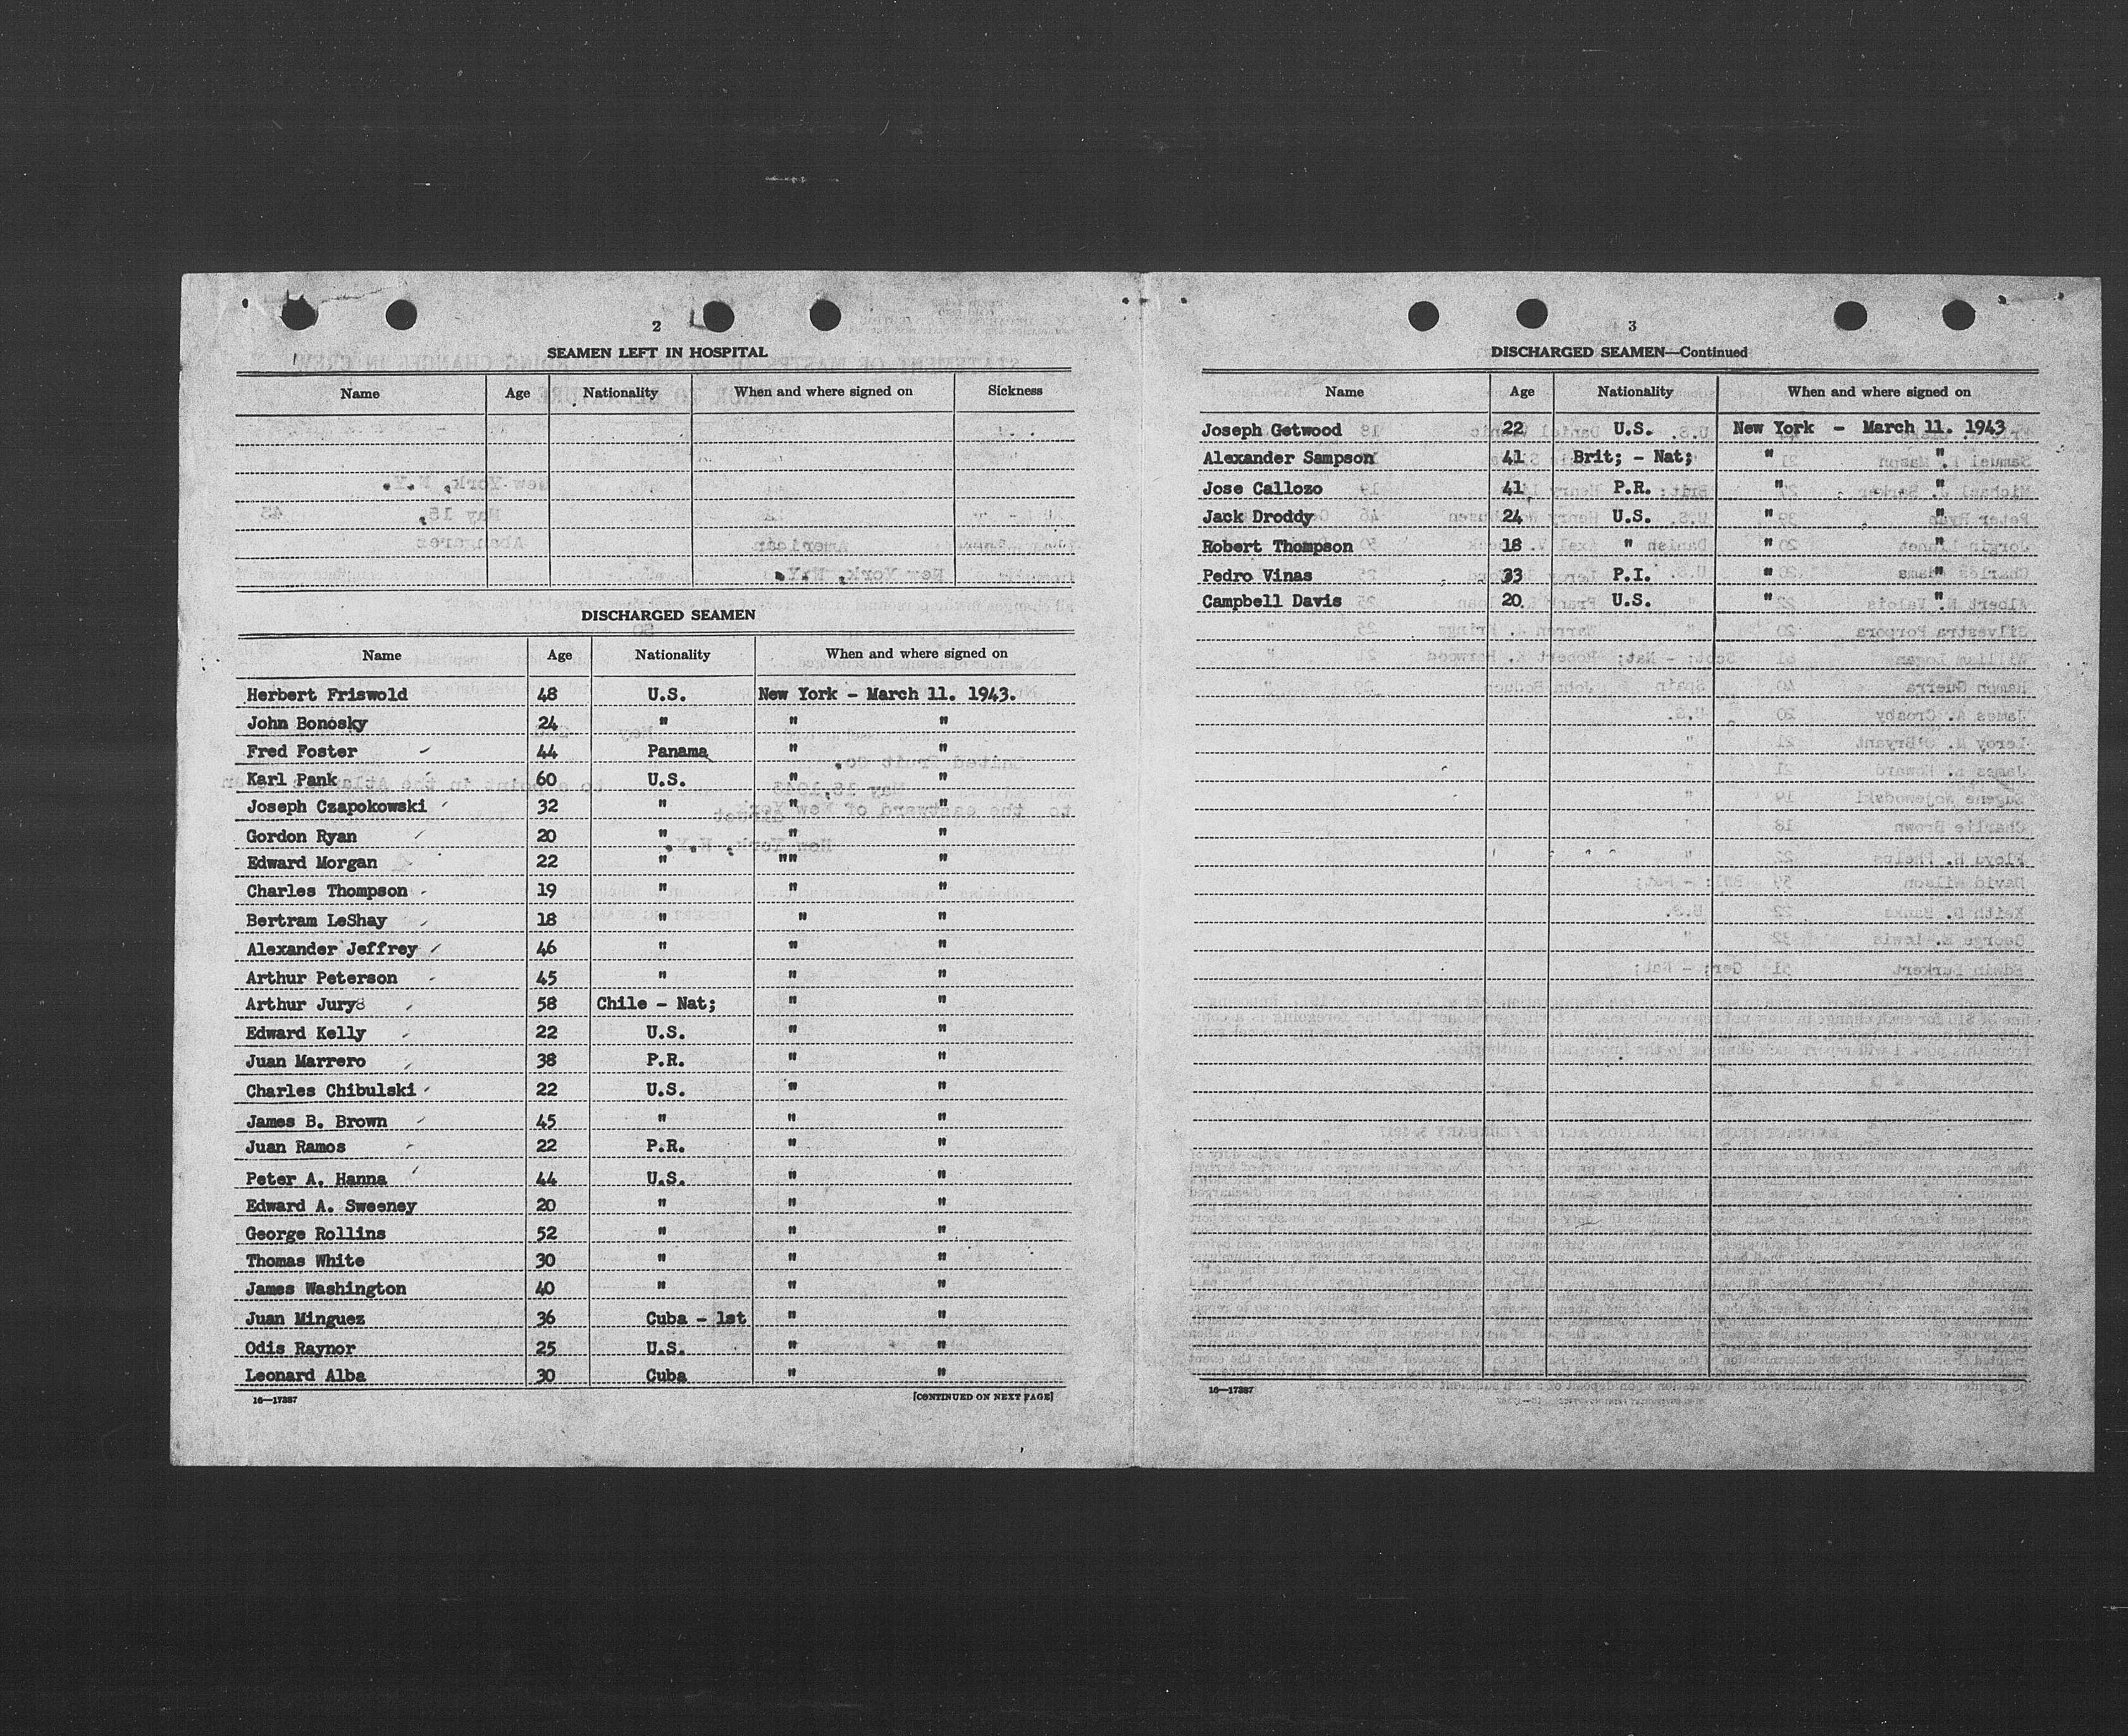 2
SEAMEN LEFT IN HOSPITAL
Name Age Nationality When and where signed on Sickness
DISCHARGED SEAMEN
Name Age Nationality When and where signed on
Herbert Friswold 48 U.S. New York - March 11. 1943.
John Bonosky 24 " " "
Fred Foster 44 Panama " "
Karl Pank 60 U.S. " "
Joseph Czapokowski 32 " " "
Gordon Ryan 20 " " "
Edward Morgan 22 " "" "
Charles Thompson 19 " " "
Bertram LeShay 18 " " "
Alexander Jeffrey 46 " " "
Arthur Peterson 45 " " "
Arthur Jury 58 Chile - Nat; " "
Edward Kelly 22 U.S. " "
Juan Marrero 38 P.R. " "
Charles Chibulski 22 U.S. " "
James B. Brown 45 " " "
Juan Ramos 22 P.R. " "
Peter A. Hanna 44 U.S. " "
Edward A. Sweeney 20 " " "
George Rollins 52 " " "
Thomas White 30 " " "
James Washington 40 " " "
Juan Minguez 36 Cuba - 1st " "
Odis Raynor 25 U.S. " "
Leonard Alba 30 Cuba " "
16—17387 [CONTINUED ON NEXT PAGE]
3
DISCHARGED SEAMEN—Continued
Name Age Nationality When and where signed on
Joseph Getwood 22 U.S. New York - March 11. 1943
Alexander Sampson 41 Brit; - Nat; " "
Jose Callozo 41 P.R. " "
Jack Droddy 24 U.S. " "
Robert Thompson 18 " " "
Pedro Vinas 33 P.I. " "
Campbell Davis 20 U.S. " "
16—17387